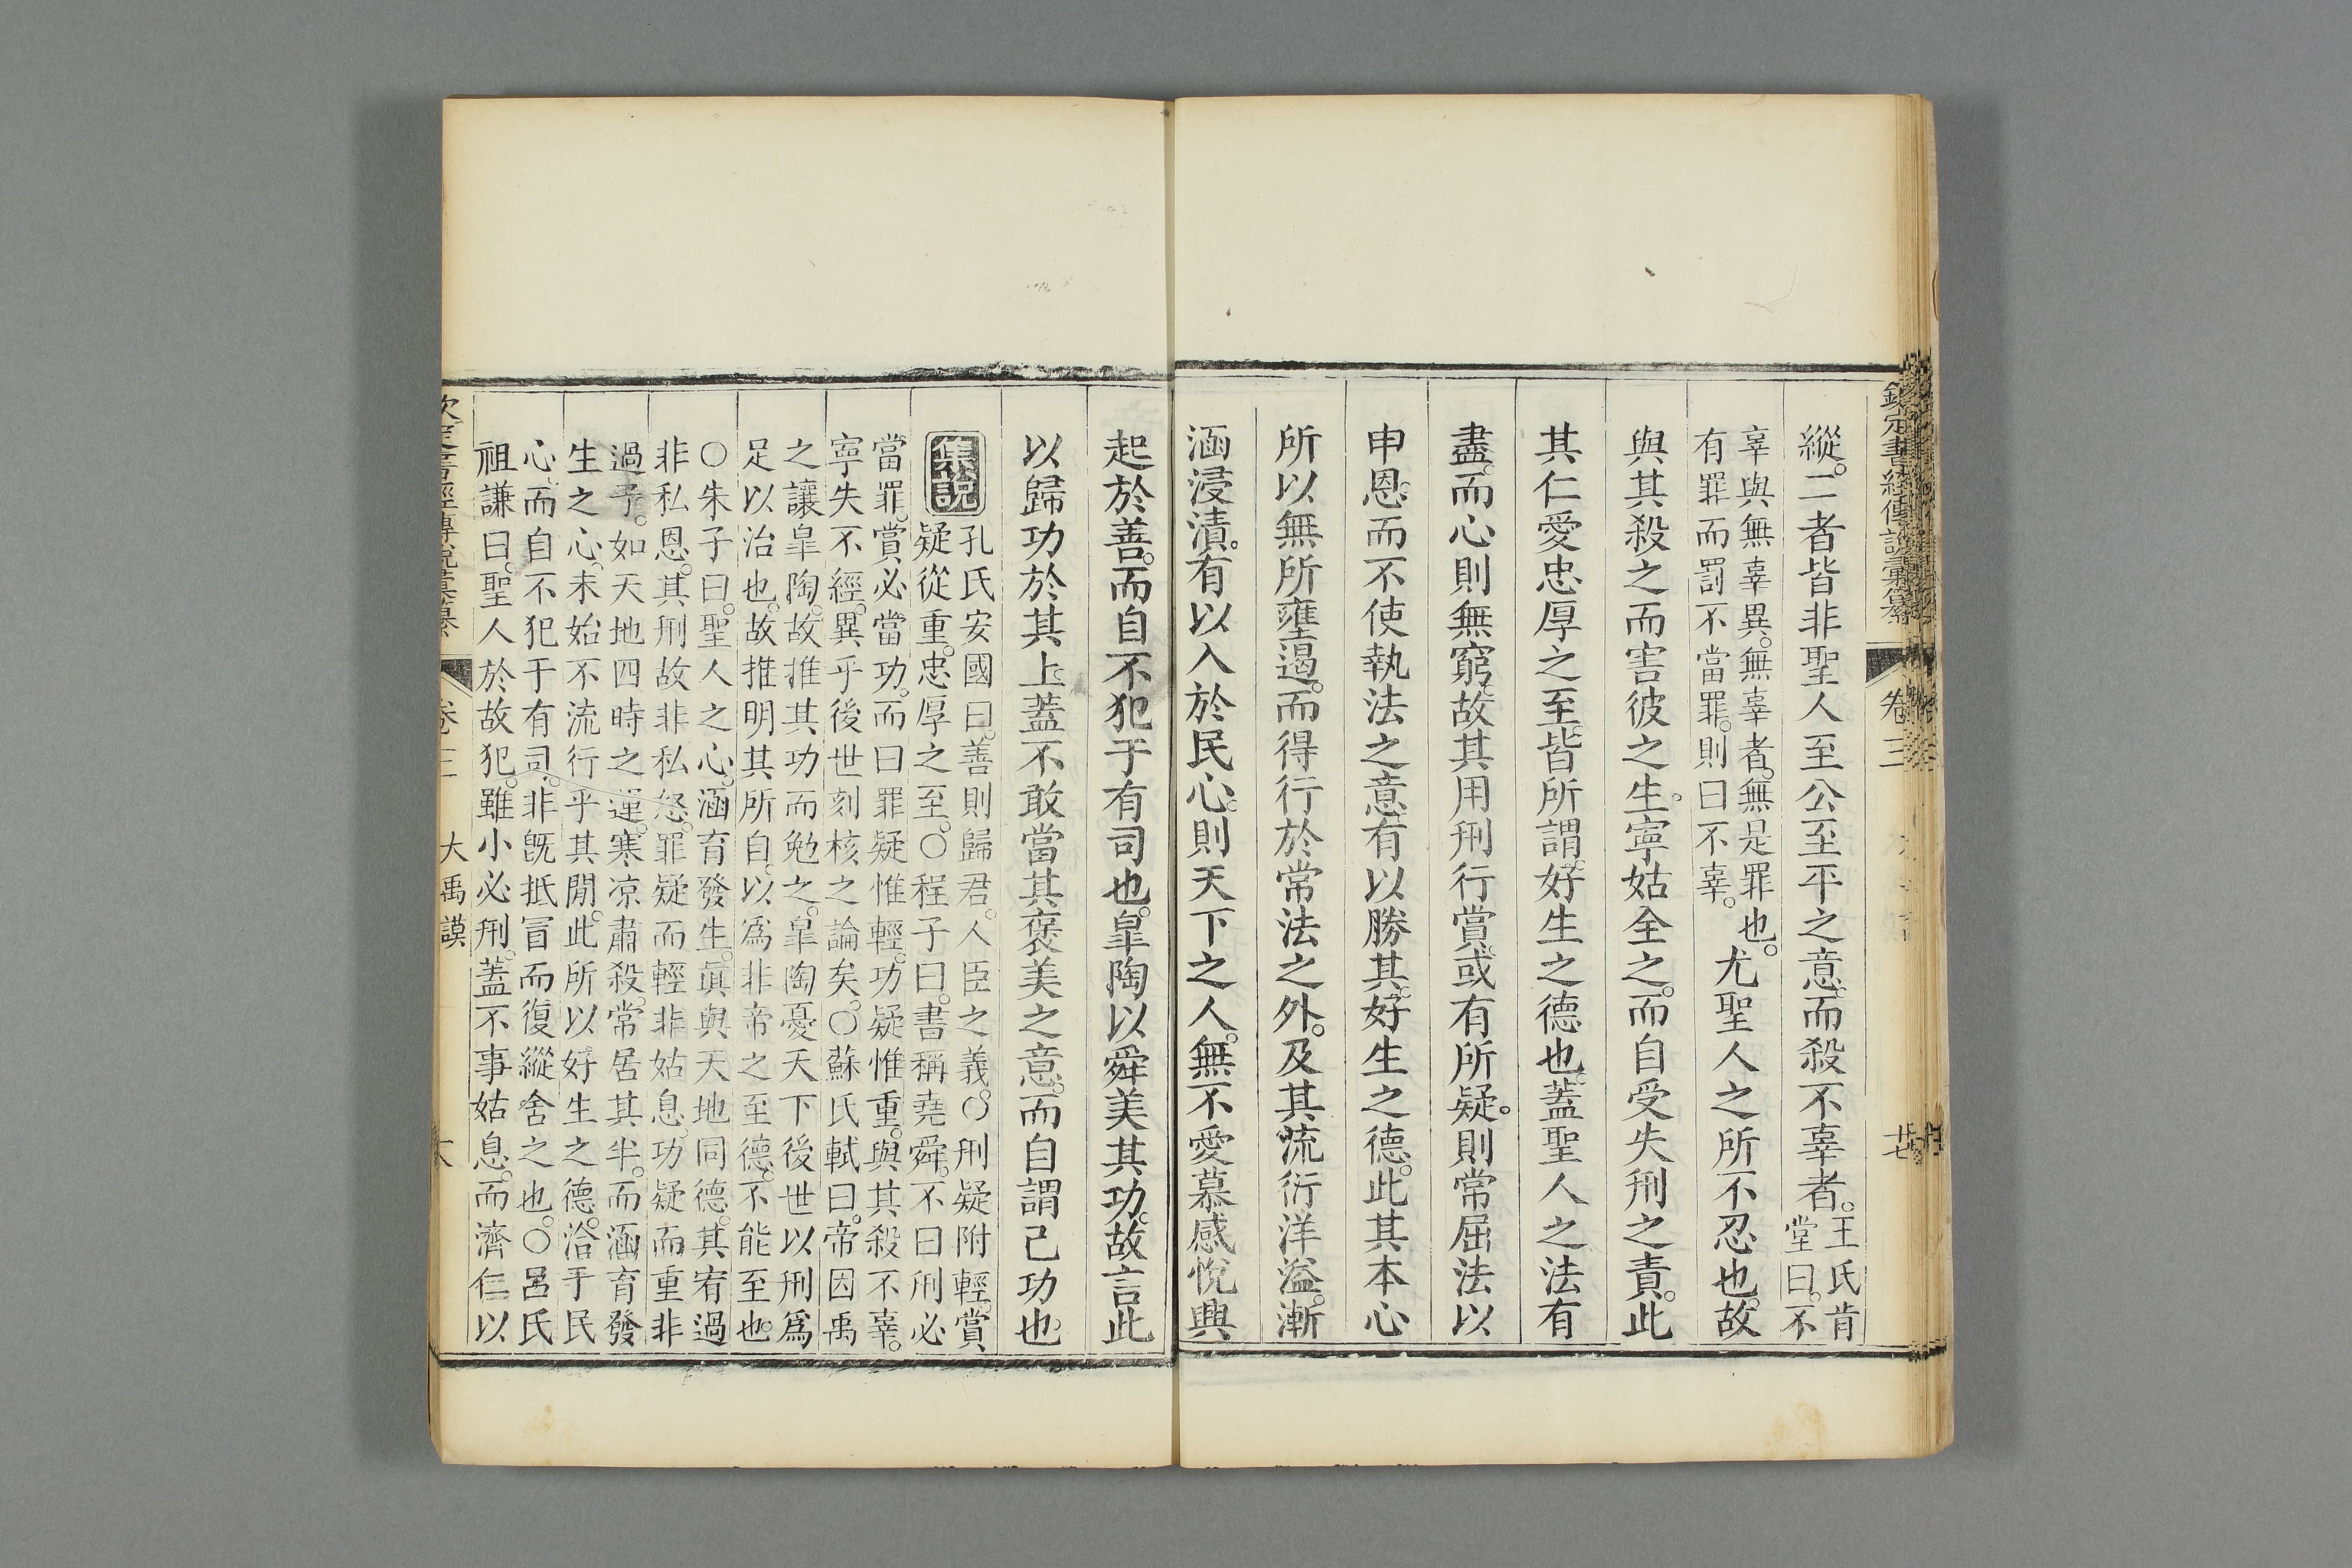 欽定書經傳說彙纂
卷三
縱。二者皆非聖人至公至平之意。而殺不辜者。王氏肯
堂曰。不
辜與無辜異。無辜者。無是罪也。
有罪而罰不當罪。則曰不辜。
尤聖人之所不忍也。故
與其殺之而害彼之生。寧姑全之。而自受失刑之責。此
其仁愛忠厚之至。皆所謂好生之德也。蓋聖人之法有
盡。而心則無窮。故其用刑行賞。或有所疑。則常屈法以
申恩。而不使執法之意。有以勝其好生之德。此其本心
所以無所壅遏。而得行於常法之外。及其流衍洋溢。漸
涵浸漬。有以入於民心。則天下之人。無不愛慕感悅。興
起於善。而自不犯于有司也。皐陶以舜美其功。故言此
以歸功於其上。蓋不敢當其褒美之意。而自謂己功也。
集說
孔氏安國曰。善則歸君。人臣之義。○刑疑附輕。賞
疑從重。忠厚之至。○程子曰。書稱堯舜。不曰刑必
當罪。賞必當功。而曰罪疑惟輕。功疑惟重。與其殺不辜。
寧失不經。異乎後世刻核之論矣。○蘇氏軾曰。帝因禹
之讓皐陶。故推其功而勉之。皐陶憂天下後世以刑爲
足以治也。故推明其所自。以爲非帝之至德。不能至也。
○朱子曰。聖人之心。涵育發生。眞與天地同德。其宥過
非私恩。其刑故非私怒。罪疑而輕非姑息。功疑而重非
過予。如天地四時之運。寒凉肅殺。常居其半。而涵育發
生之心。未始不流行乎其閒。此所以好生之德。洽于民
心。而自不犯于有司。非旣抵冒而復縱舍之也。○呂氏
祖謙曰。聖人於故犯。雖小必刑。蓋不事姑息。而濟仁以
書經傳說彙纂
卷三
大禹謨